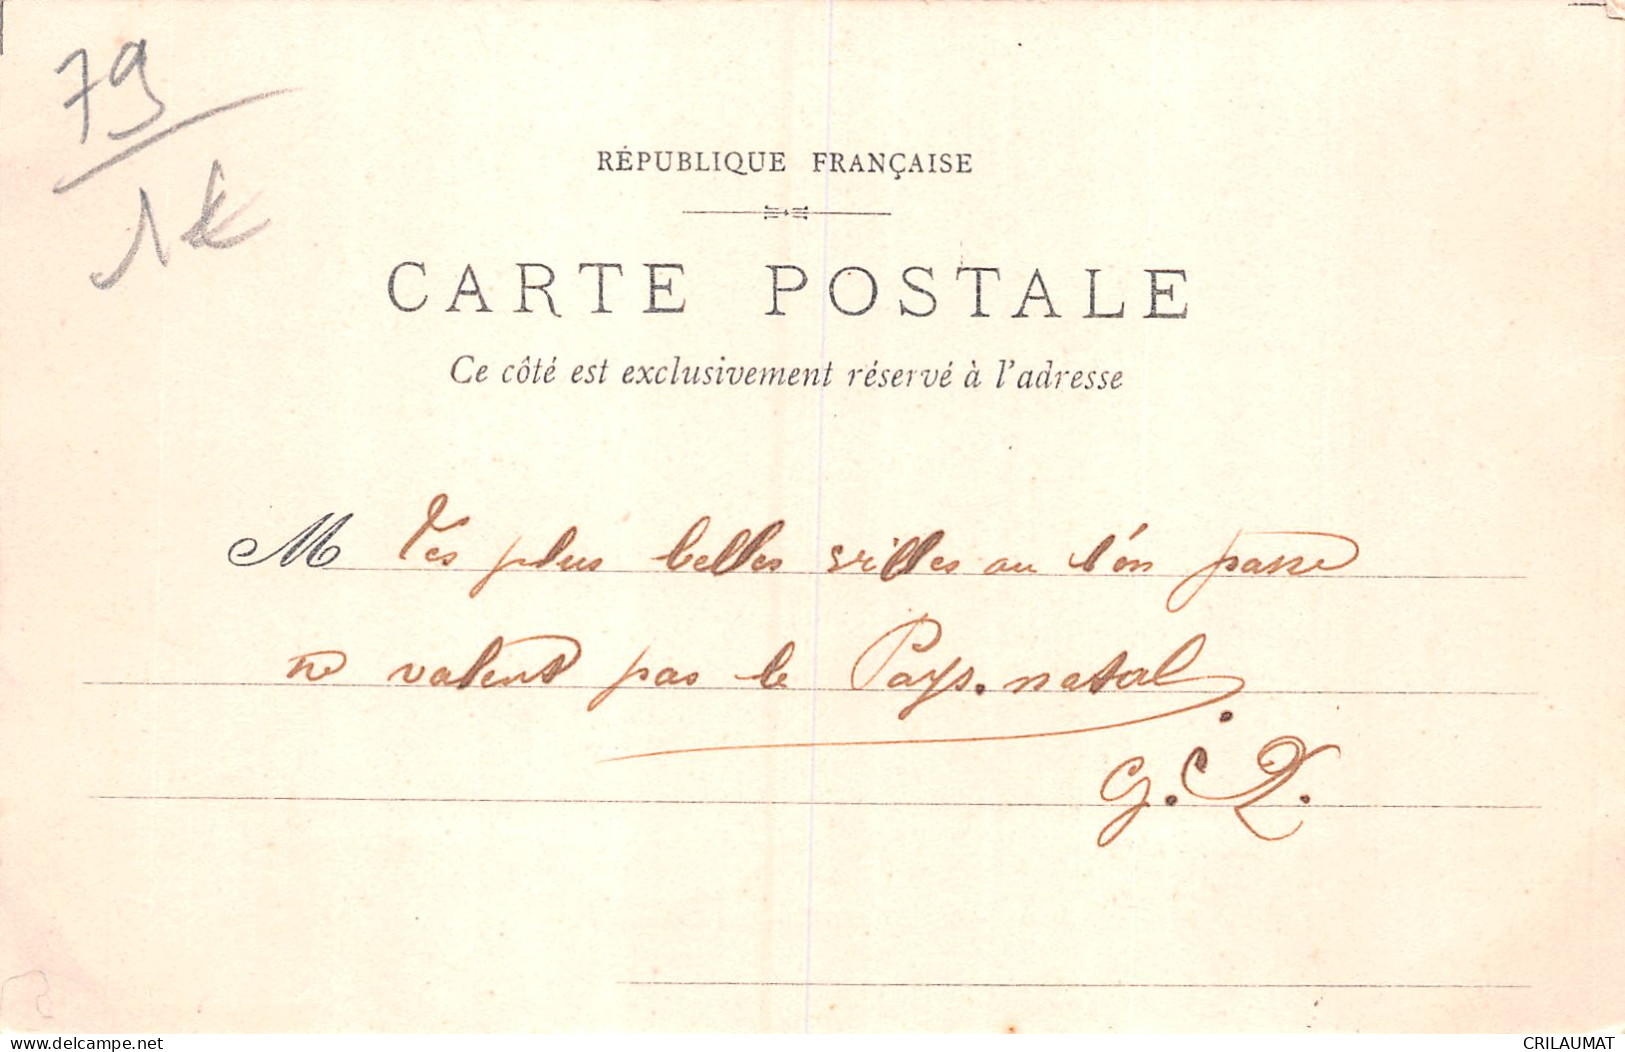 79
1€
RÉPUBLIQUE FRANÇAISE
CARTE POSTALE
Ce côté est exclusivement réservé à l'adresse
M Les plus belles villes ou l'on passe
ne valent pas le Pays natal.
G.
www.delcampe.net
CRILAUMAT